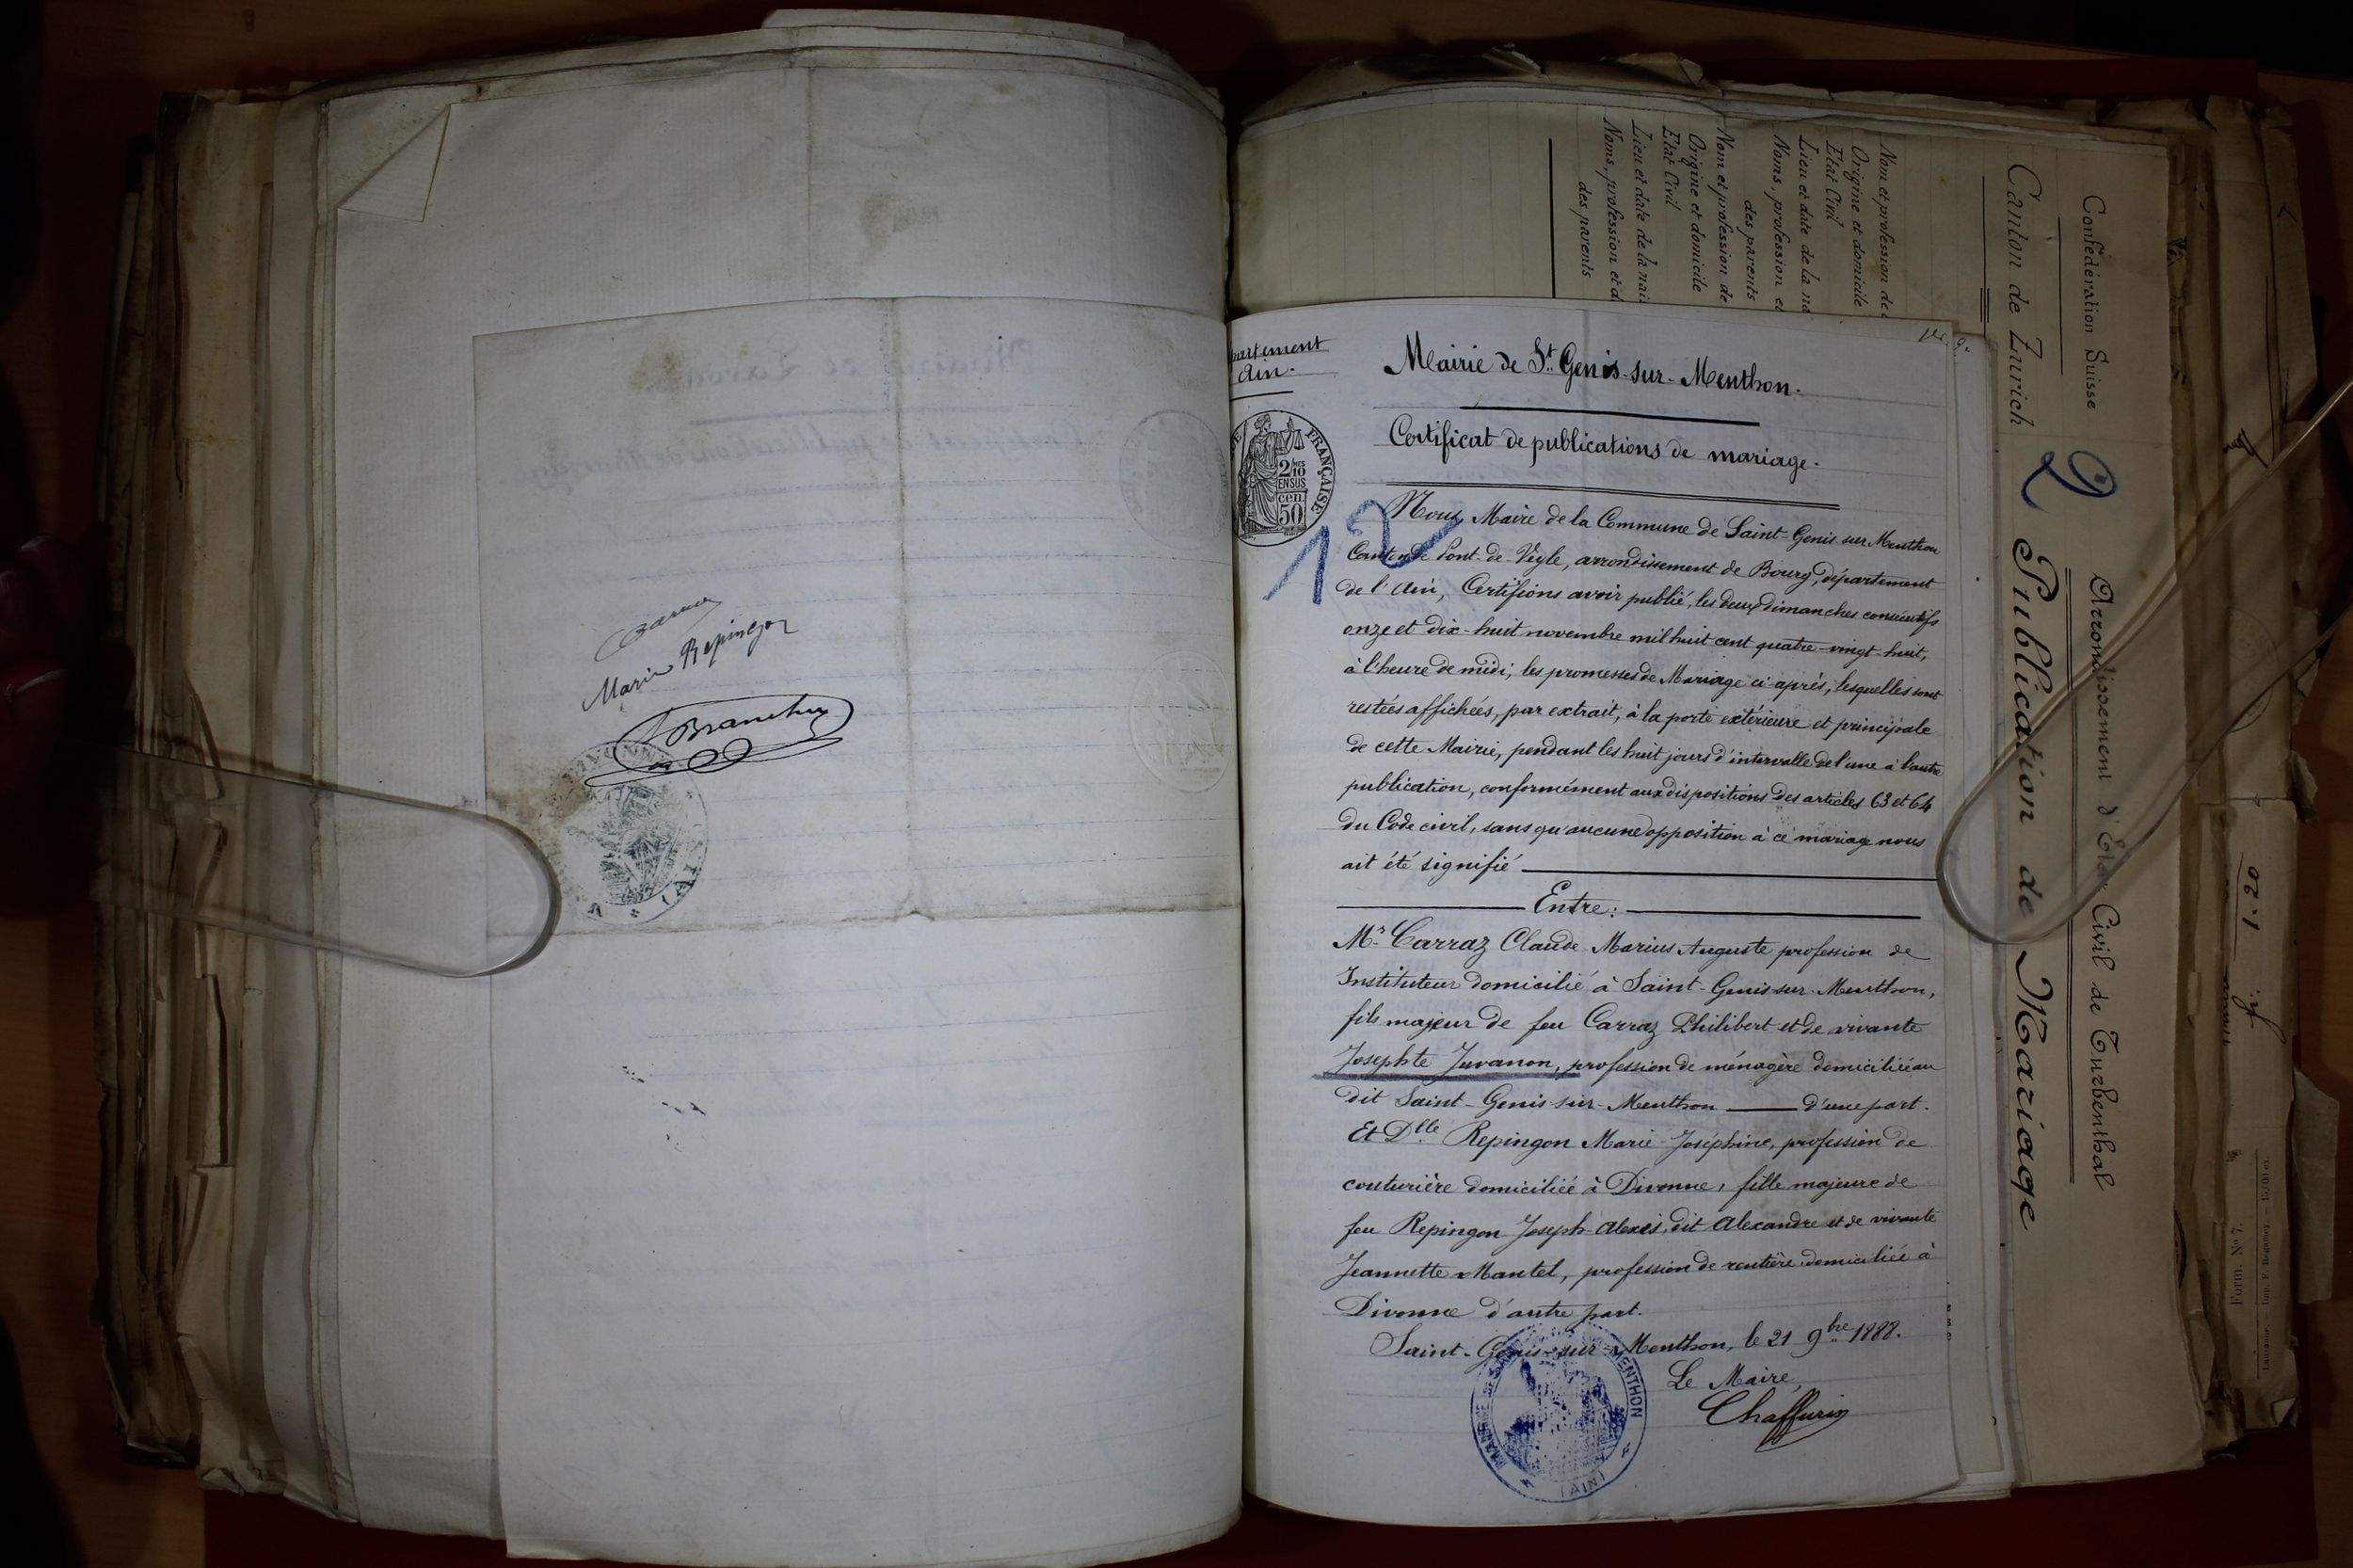 Carraz
Marie Repingon
Branchu
partement
Ain.
Mairie de St Genis-sur-Menthon.
Certificat de publications de mariage.
FRANÇAISE
2/10
EN SUS
50 cen
12
Nous Maire de la Commune de Saint-Genis-sur Menthon
Canton de Pont-de-Veyle, arrondissement de Bourg, département
de l'Ain, Certifions avoir publié, les deux dimanches consécutifs
onze et dix-huit novembre mil huit cent quatre-vingt-huit,
à l'heure de midi, les promesses de Mariage ci-après, lesquelles sont
restées affichées, par extrait, à la porte extérieure et principale
de cette Mairie, pendant les huit jours d'intervalle de l'une à l'autre
publication, conformément aux dispositions des articles 63 et 64
du Code civil, sans qu'aucune opposition à ce mariage nous
ait été signifié
Entre:
Mr. Carraz Claude-Marius Auguste profession de
Instituteur domicilié à Saint-Genis-sur-Menthon,
fils majeur de feu Carraz Philibert et de vivante
Josephte Juvanon, profession de ménagère domiciliée au
dit Saint-Genis-sur-Menthon d'une part.
Et Dlle Repingon Marie-Joséphine, profession de
couturière domiciliée à Divonne, fille majeure de
feu Repingon Joseph-Alexis, dit Alexandre et de vivante
Jeannette Mantel, profession de rentière domiciliée à
Divonne d'autre part.
Saint-Genis-sur-Menthon, le 21 9bre 1888.
Le Maire,
Chaffurin
MENTHON
(AIN)
Confédération Suisse
Arrondissement d'Etat Civil de Turbenthal
Canton de Zurich
2
Publication de Mariage
Nom et profession de
Origine et domicile
Etat Civil
Lieu et date de la na
Noms, profession et
des parents
Nom et profession de
Origine et domicile
Etat Civil
Lieu et date de la nais
Noms, profession et d
des parents
1.20
Form. No 7.